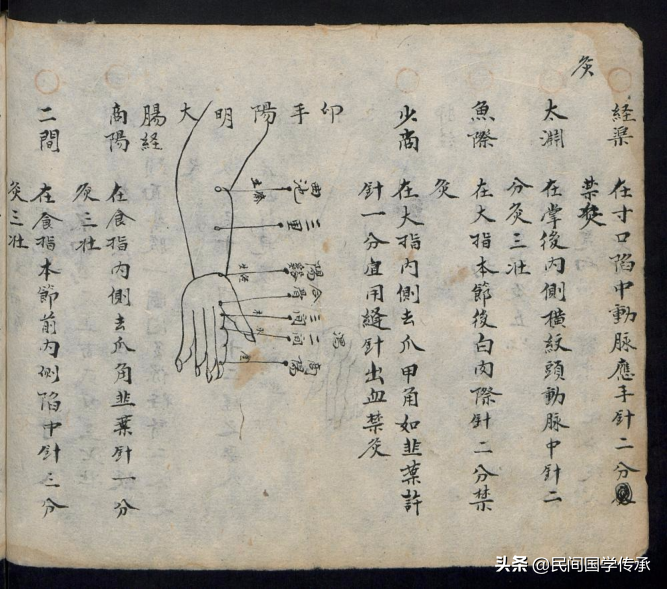 経渠 在寸口陷中動脉應手針二分
灸
禁灸
太淵 在掌後内側横紋頭動脉中針二
分灸三壮
魚際 在大指本節後白肉際針二分禁
灸
少商 在大指内側去爪甲角如韮葉許
針一分宜用縫針出血禁灸
手陽明大
腸経
曲池
三里
陽谿
合骨
三间
二间
商陽
商陽 在食指内側去爪角韮葉針一分
灸三壮
二間 在食指本節前内側陷中針三分
灸三壮
头条 @民间国学传承